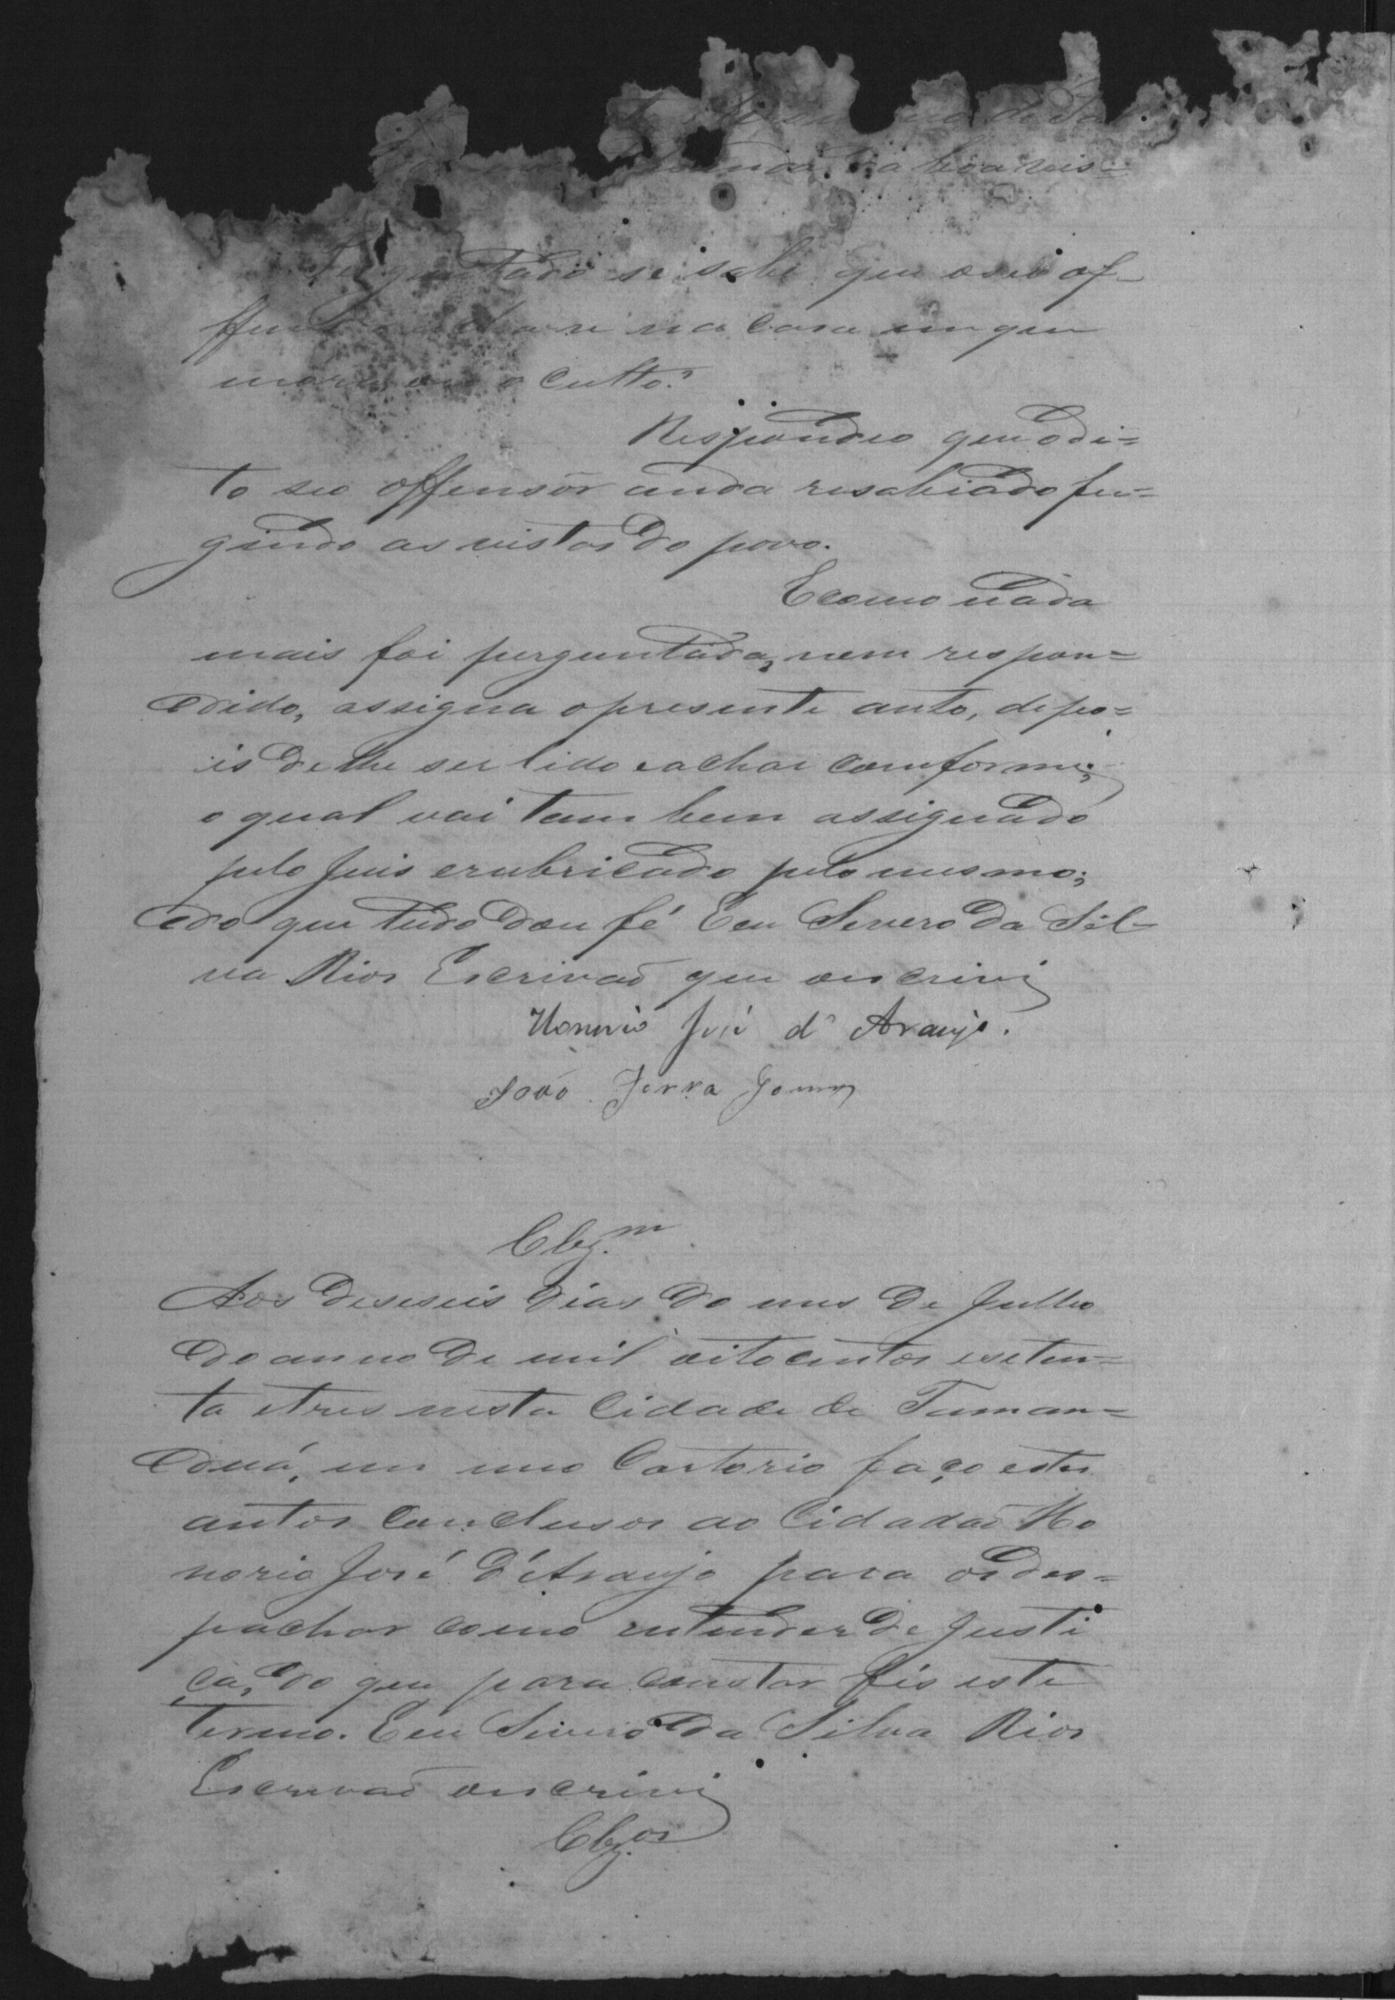 da boa vis=
Perguntado se sabe que o seu of-
ffensor acha se na casa em que
mora, ou occulto?
Respondeo que o di=
to seo offensor anda resabiado fu=
gindo as vistas do povo.
E como nada
mais foi perguntada, nem respon=
dido, assigna o presente auto, depo=
is de lhe ser lido e achar comforme;
o qual vai tam bem assignado
pelo Juis e rubricado pelo mesmo;
do que tudo dou fé Eeu Severo da Sil-
va Rios Escrivaõ que o escrivi
Honorio José d' Araujo.
João Ferra Gomes
Clz.m
Aos deseseis dias do mes de Julho
do anno de mil oitocentos e seten=
ta e tres nesta Cidade de Taman=
duá, em meo Cartorio faço estes
autos conclusos ao Cidadaõ Ho
norio José d'Araujo para os des=
pachar como entender de Justi
ça, do que para constar fis este
termo. Eeu Severo da Silva Rios
Escrivaõ o escrivi
Clz.os